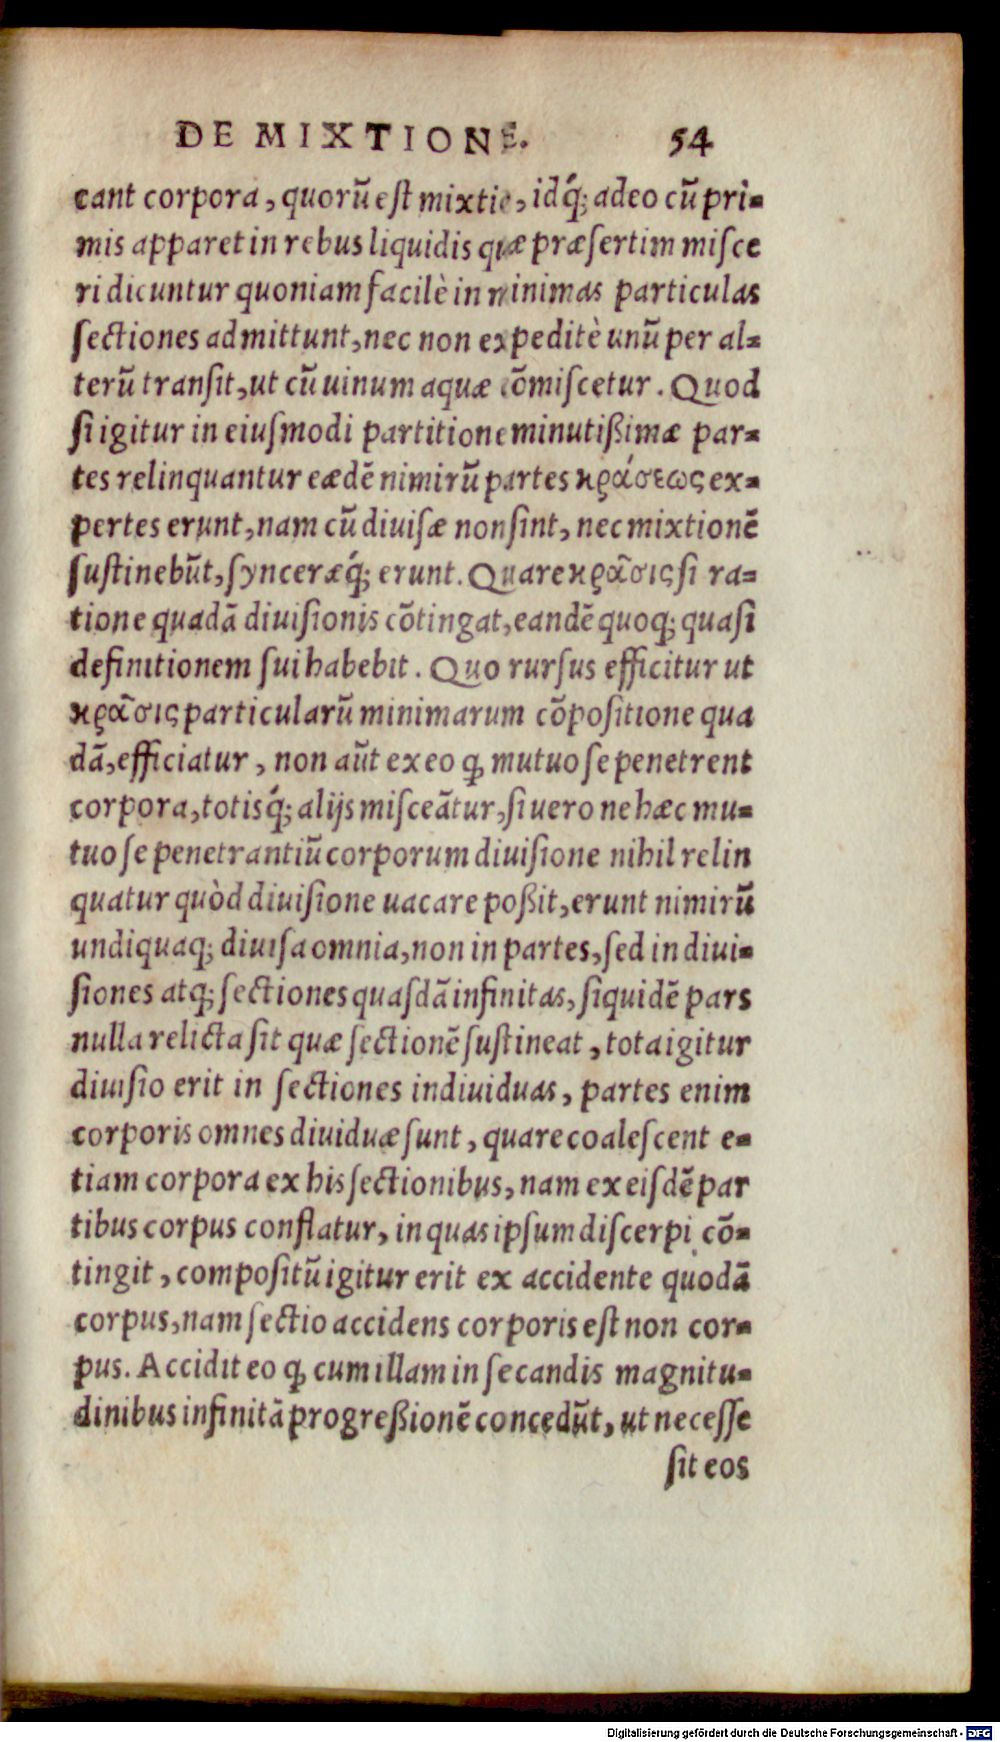 DE MIXTIONE. 54
cant corpora, quorũ est mixtio, idq́; adeo cũ pri-
mis apparet in rebus liquidis quæ præsertim misce
ri dicuntur quoniam facilè in minimas particulas
sectiones admittunt, nec non expeditè unũ per al-
terũ transit, ut cũ uinum aquæ cõmiscetur. Quod
si igitur in eiusmodi partitione minutißimæ par-
tes relinquantur eædẽ nimirũ partes κράσεως ex-
pertes erunt, nam cũ diuisæ non sint, nec mixtionẽ
sustinebũt, synceræq́; erunt. Quare κρᾶσις si ra-
tione quadã diuisionis cõtingat, eandẽ quoq; quasi
definitionem sui habebit. Quo rursus efficitur ut
κρᾶσις particularũ minimarum cõpositione qua
dã, efficiatur, non aũt ex eo ꝙ mutuo se penetrent
corpora, totisq́; alijs misceãtur, si uero ne hæc mu-
tuo se penetrantiũ corporum diuisione nihil relin
quatur quòd diuisione uacare poßit, erunt nimirũ
undiquaq; diuisa omnia, non in partes, sed in diui-
siones atq; sectiones quasdã infinitas, siquidẽ pars
nulla relicta sit quæ sectionẽ sustineat, tota igitur
diuisio erit in sectiones indiuiduas, partes enim
corporis omnes diuiduæ sunt, quare coalescent e-
tiam corpora ex his sectionibus, nam ex eisdẽ par
tibus corpus conflatur, in quas ipsum discerpi cõ-
tingit, compositũ igitur erit ex accidente quodã
corpus, nam sectio accidens corporis est non cor-
pus. Accidit eo ꝙ cum illam in secandis magnitu-
dinibus infinitã progreßionẽ concedũt, ut necesse
sit eos
Digitalisierung gefördert durch die Deutsche Forschungsgemeinschaft - DFG